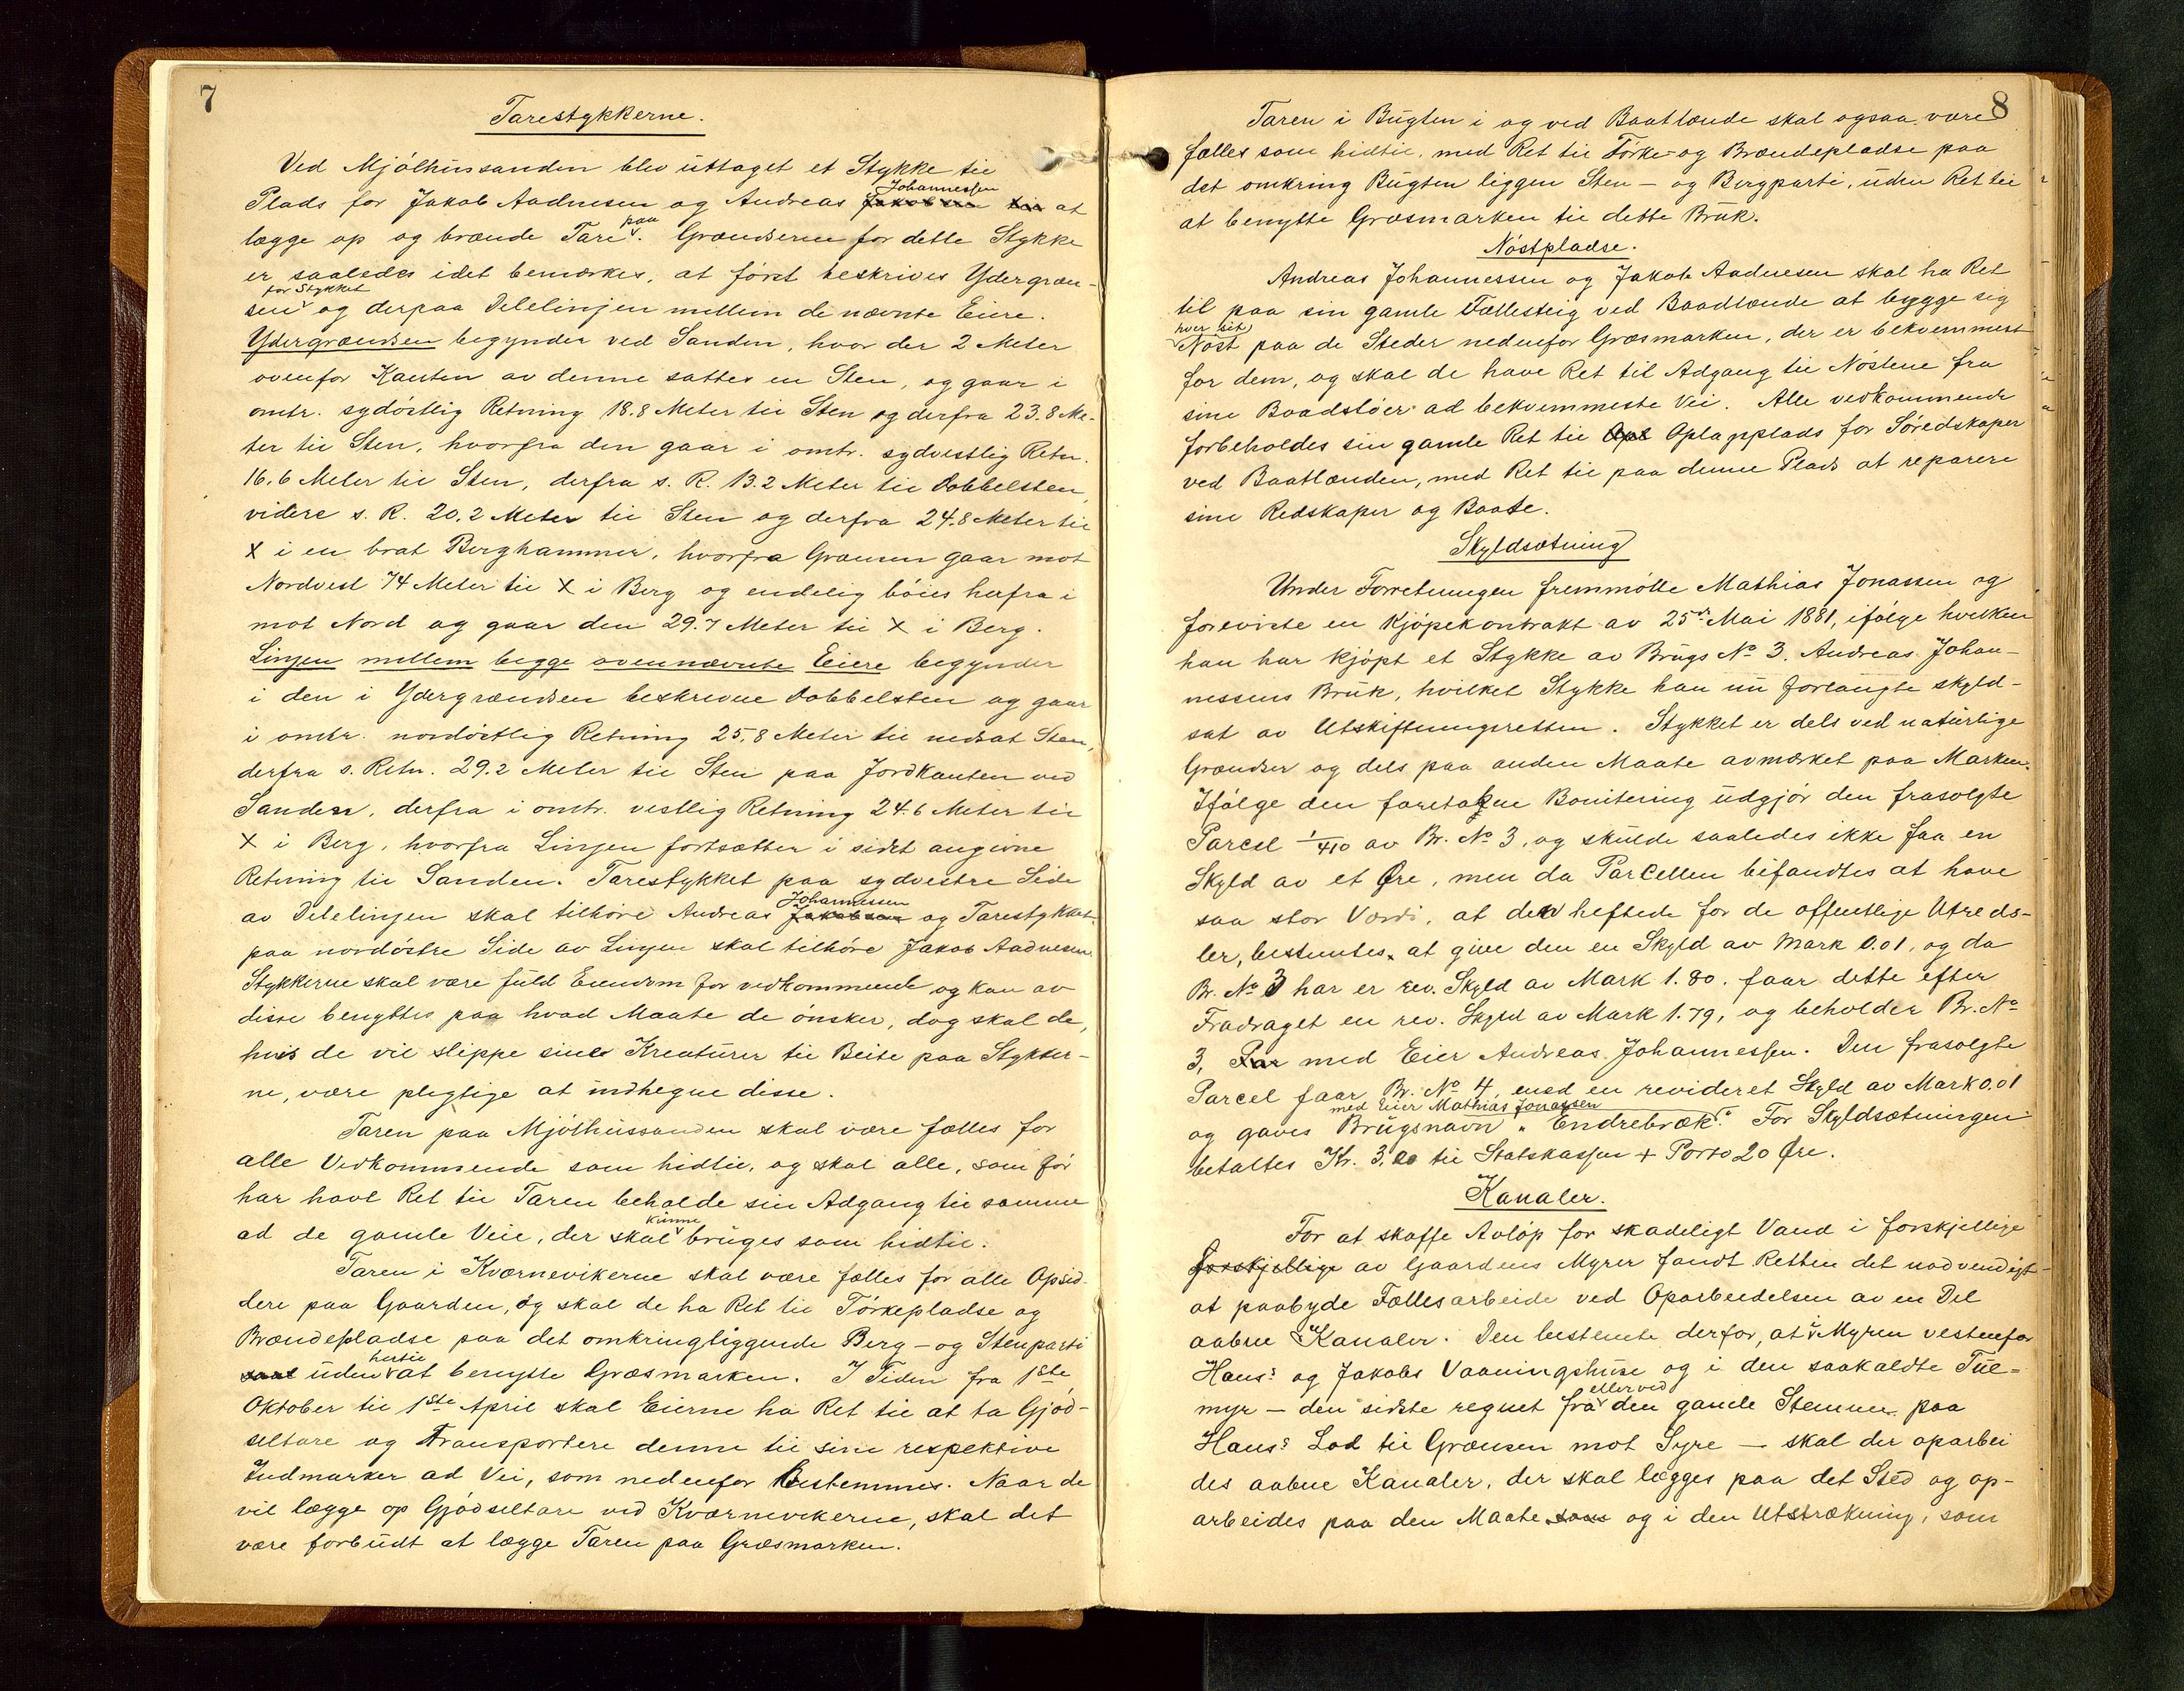 7
Tarestykkerne.
Ved Mjólhússanden blev úttaget et Stykke til
Plads for Jakob Aadnesen og Andreas Jakobsen Johannessen at
lægge op og brænde Tare paa. Grændserne for dette Stykke
er saaledes idet bemærkes, at först beskrives Ydergræn-
sen for Stykket og derpaa Delelinjen mellem de nævnte Eiere.
Ydergrændsen begynder ved Sanden, hvor der 2 Meter
ovenfor Kanten av denne sattes en Sten, og gaar i
omtr. sydóstlig Retning 18.8 Meter til Sten og derfra 23.8 Me-
ter til Sten, hvorfra den gaar i omtr. sydvestlig Retn.
16.6 Meter til Sten, derfra s. R. 13.2 Meter til Dobbelsten,
videre s. R. 20.2 Meter til Sten og derfra 24.8 Meter til
X i en brat Berghammer, hvorfra Grænsen gaar mot
Nordvest 74 Meter til X i Berg og endelig bóies herfra i
mot Nord og gaar den 29.7 Meter til X i Berg.
Linjen mellem begge ovennævnte Eiere begynder
i den i Ydergrændsen beskrevne Dobbelsten og gaar
i omtr. nordóstlig Retning 25.8 Meter til nedsat Sten,
derfra s. Retn. 29.2 Meter til Sten paa Jordkanten ved
Sanden, derfra i omtr. vestlig Retning 24.6 Meter til
X i Berg, hvorfra Linjen fortsætter i sidst angivne
Retning til Sanden. Tarestykket paa sydvestre Side
av Delelinjen skal tilhóre Andreas Jakobsen Johannessen og Tarestykket
paa nordóstre Side av Linjen skal tilhóre Jakob Aadnesen.
Stykkerne skal være fúld Eiendom for vedkommende og kan av
disse benyttes paa hvad Maate de ónsker, dog skal de,
hvis de vil slippe sine Kreatúrer til Beite paa Stykker-
ne, være plegtige at indhegne disse.
Taren paa Mjólhússanden skal være fælles for
alle Vedkommende som hidtil, og skal alle, som fór
har havt Ret til Taren beholde sin Adgang til samme
ad de gamle Veie, der skal kúnne brúges som hidtil.
Taren i Kværnevikerne skal være fælles for alle Opsid-
dere paa Gaarden, og skal de ha Ret til Tórkepladse og
Brændepladse paa det omkringliggende Berg- og Stenparti
samt úden hertil at benytte Græsmarken. I Tiden fra 1ste
Oktober til 1ste April skal Eierne ha Ret til at ta Gjód-
seltare og transportere denne til sine respektive
Indmarker ad Vei, som nedenfor bestemmes. Naar de
vil lægge op Gjódseltare ved Kværnevikerne, skal det
være forbúdt at lægge Taren paa Græsmarken.
8
Taren i Búgten i og ved Baatlænde skal ogsaa være
fælles som hidtil, med Ret til Tórke- og Brændepladse paa
det omkring Búgten liggen Sten- og Bergparti, úden Ret til
at benytte Græsmarken til dette Brúk.
Nóstpladse.
Andreas Johannessen og Jakob Aadnesen skal ha Ret
til paa sin gamle Fællesteig ved Baadlænde at bygge sig
hver sit Nóst paa de Steder nedenfor Græsmarken, der er bekvemmest
for dem, og skal de have Ret til Adgang til Nóstene fra
sine Baadstóer ad bekvemmeste Vei. Alle vedkommende
forbeholdes sin gamle Ret til Opl Oplagsplads for Sóredskaper
ved Baatlænden, med Ret til paa denne Plads at reparere
sine Redskaper og Baate.
Skyldsætning
Under Forretningen fremmótte Mathias Jonassen og
foreviste en Kjópekontrakt av 25de Mai 1881, ifólge hvilken
han har kjópt et Stykke av Brúgs No 3. Andreas Johan-
nessens Brúk, hvilket Stykke han nú forlangte skyld-
sat av Utskiftningsretten. Stykket er dels ved natúrlige
Grændser og dels paa anden Maate avmerket paa Marken.
Ifólge den foretakne Bonitering údgjór den frasolgte
Parcel 1/410 av Br. No 3, og skúlde saaledes ikke faa en
Skyld av et Øre, men da Parcellen befandtes at have
saa stor Værdi, at den heftede for de offentlige Utreds-
ler, bestemtes at give den en Skyld av Mark 0.01, og da
Br. No 3 har er rev. Skyld av Mark 1.80. faar dette efter
Fradraget en rev. Skyld av Mark 1.79, og beholder Br. No
3, Par med Eier Andreas Johannessen. Den frasolgte
Parcel faar Br. No 4 med en revideret Skyld av Mark 0,01
med Eier Mathias Jonassen
og gaves Brúgsnavn "Endrebræk". For Skyldsætningen
betaltes Kr. 3,20 til Statskassen + Porto 20 Øre.
Kanaler.
For at skaffe Avlóp for skadeligt Vand i forskjellige
forskjellige av Gaardens Myrer fandt Retten det nódvendigt
at paabyde Fællesarbeide ved Oparbeidelsen av en Del
aabne Kanaler. Den bestemte derfor, at i Myren vestenfor
Hans's og Jakobs Vaaningshúse og i den saakaldte Túe-
myr — den sidste regnet fra eller ved den gamle Stemme paa
Hans's Lod til Grænsen mot Syre — skal der oparbei
des aabne Kanaler, der skal lægges paa det Sted og op-
arbeides paa den Maate som og i den Utstrækning, som